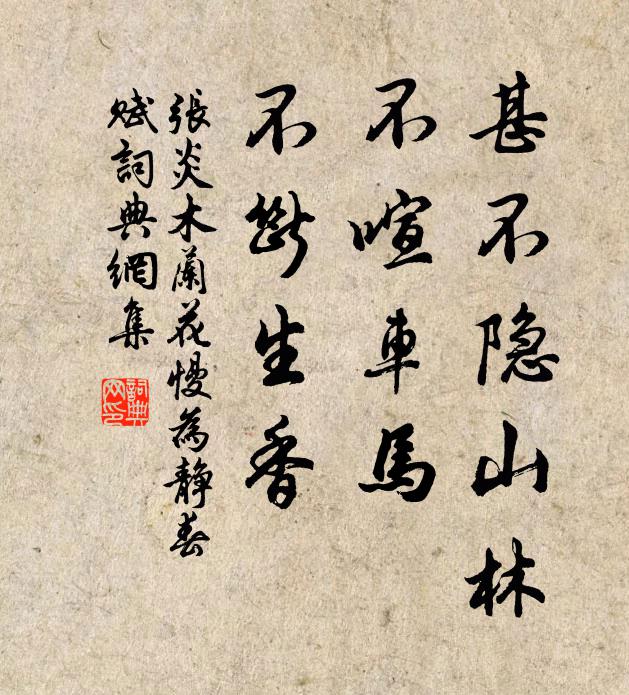 甚不隐山林
不喧車馬
不斷生香
張炎木蘭花慢為静春
賦詞典網集
詞典
网印